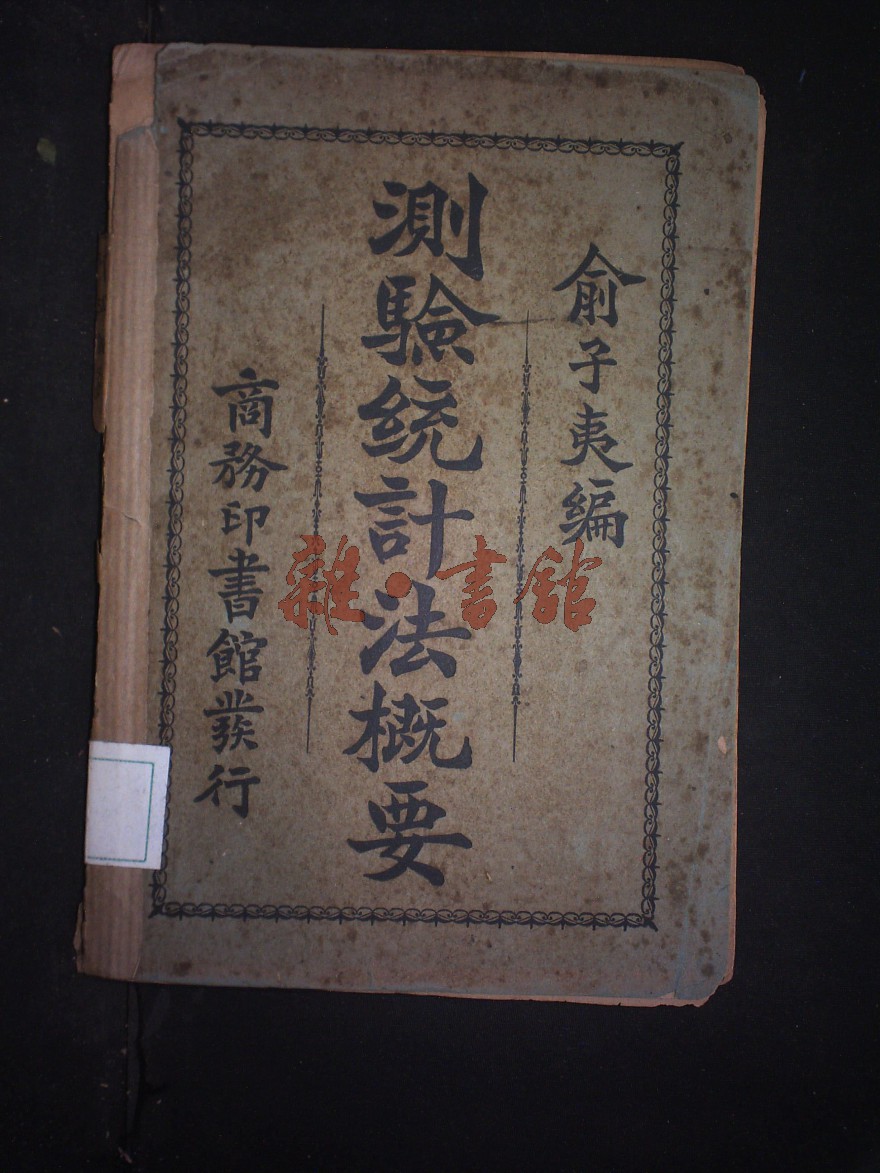 俞子夷編
測驗統計法概要
商務印書館發行
雜·書館